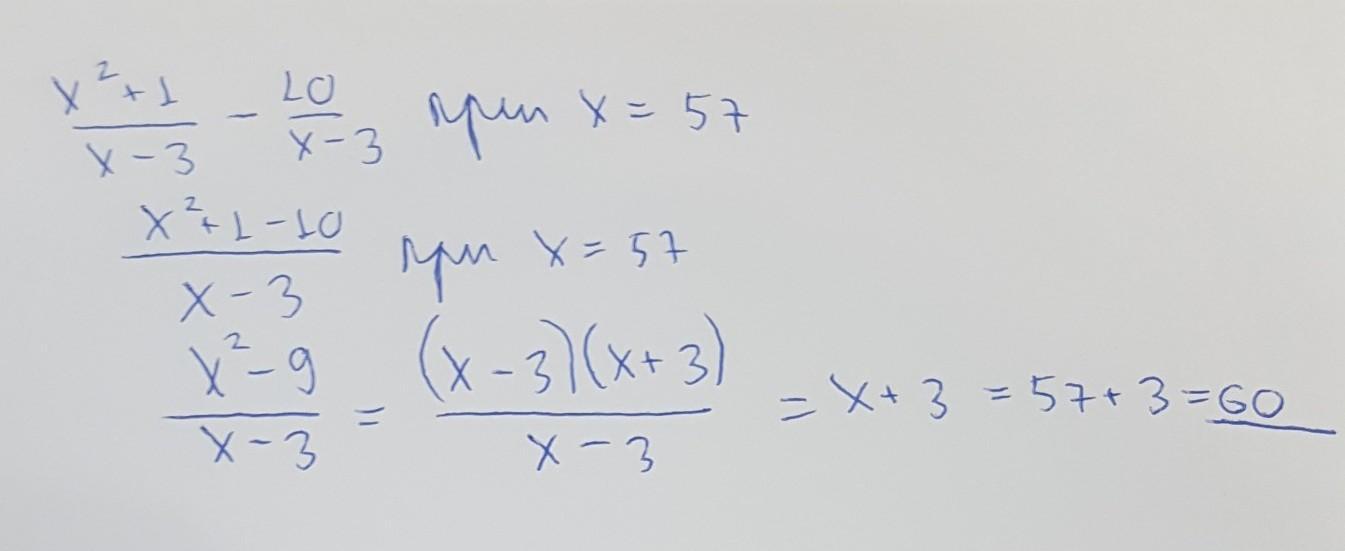 (x²+1)/(x-3) - 10/(x-3) при x = 57
(x²+1-10)/(x-3) при x = 57
(x²-9)/(x-3) = ((x-3)(x+3))/(x-3) = x+3 = 57+3 = 60